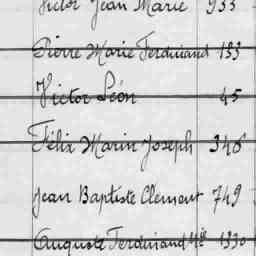 Victor Jean Marie 933
Pierre Marie Ferdinand 133
Victor Léon 45
Félix Marin Joseph 346
Jean Baptiste Clement 749
Auguste Ferdinand 1330